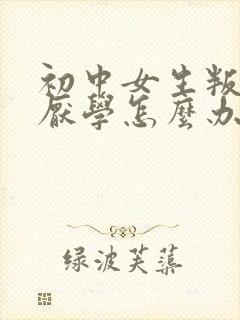 初中女生叛
厭學怎麼办
绿波芙蕖